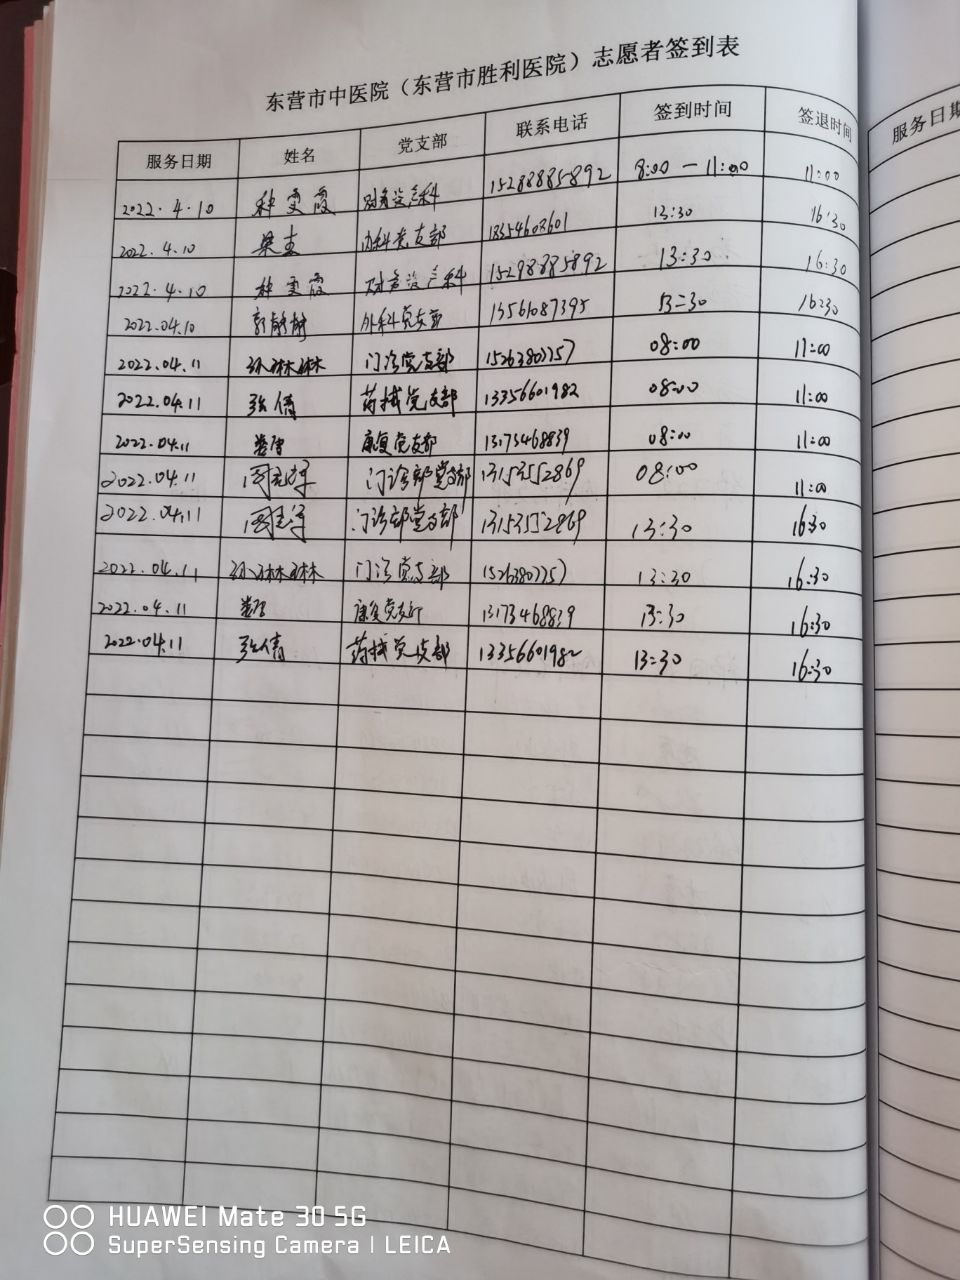 东营市中医院（东营市胜利医院）志愿者签到表
服务日期 姓名 党支部 联系电话 签到时间 签退时间
2022.4.10 种雯霞 财务资产科 15288885892 8:00 — 11:00 11:00
2022.4.10 内科党支部 13:30 16:30
2022.4.10 种雯霞 财务资产科 15298885892 13:30 16:30
2022.04.10 郭静静 外科党支部 13561087395 13:30 16:30
2022.04.11 孙琳琳 门诊党支部 15263807757 08:00 11:00
2022.04.11 张倩 药械党支部 13356601982 08:00 11:00
2022.04.11 康复党支部 13173468839 08:00 11:00
2022.04.11 门诊部党支部 13153552869 08:00 11:00
2022.04.11 门诊部党支部 13153552869 13:30 16:30
2022.04.11 孙琳琳 门诊党支部 15263807757 13:30 16:30
2022.04.11 康复党支部 13173468839 13:30 16:30
2022.04.11 张倩 药械党支部 13356601982 13:30 16:30
服务日期
HUAWEI Mate 30 5G
SuperSensing Camera | LEICA